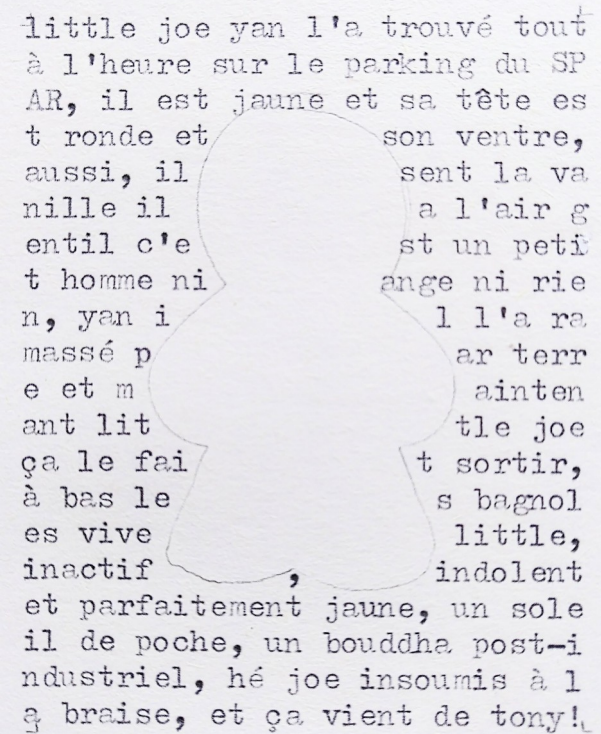 little joe yan l'a trouvé tout
à l'heure sur le parking du SP
AR, il est jaune et sa tête es
t ronde et son ventre,
aussi, il sent la va
nille il a l'air g
entil c'e st un peti
t homme ni ange ni rie
n, yan i l l'a ra
massé p ar terr
e et m ainten
ant lit tle joe
ça le fai t sortir,
à bas le s bagnol
es vive little,
inactif , indolent
et parfaitement jaune, un sole
il de poche, un bouddha post-i
ndustriel, hé joe insoumis à l
a braise, et ça vient de tony!